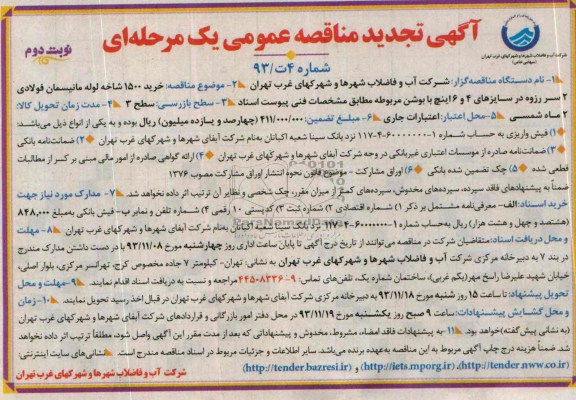 آگهی تجدید مناقصه عمومی یک مرحله‌ای
شماره ۴ت/۹۳
نوبت دوم
شرکت آب و فاضلاب شهرها و شهرکهای غرب تهران
(سهامی خاص)
۱- نام دستگاه مناقصه‌گزار: شرکت آب و فاضلاب شهرها و شهرکهای غرب تهران ۲- موضوع مناقصه: خرید ۱۵۰۰ شاخه لوله مانیسمان فولادی
۲ سر رزوه در سایزهای ۴ و ۶ اینچ با بوشن مربوطه مطابق مشخصات فنی پیوست اسناد ۳- سطح بازرسی: سطح ۳ ۴- مدت زمان تحویل کالا:
۲ ماه شمسی ۵- محل اعتبار: اعتبارات جاری ۶- مبلغ تضمین: ۴۱۱/۰۰۰/۰۰۰ (چهارصد و یازده میلیون) ریال بوده و به یکی از انواع ذیل می‌باشد:
۱) فیش واریزی به حساب شماره ۱-۶۰۰۰۰۰۰-۴-۱۱۷ نزد بانک سینا شعبه اکباتان به‌نام شرکت آبفای شهرها و شهرکهای غرب تهران ۲) ضمانت‌نامه بانکی
۳) ضمانت‌نامه صادره از موسسات اعتباری غیربانکی در وجه شرکت آبفای شهرها و شهرکهای غرب تهران ۴) ارائه گواهی صادره از امور مالی مبنی بر کسر از مطالبات
قطعی شده ۵) چک تضمین شده بانکی ۶) اوراق مشارکت - موضوع قانون نحوه انتشار اوراق مشارکت مصوب ۱۳۷۶
ضمناً به پیشنهادهای فاقد سپرده، سپرده‌های مخدوش، سپرده‌های کمتر از میزان مقرر، چک شخصی و نظایر آن ترتیب اثر داده نخواهد شد. ۷- مدارک مورد نیاز جهت
خرید اسناد: الف- معرفی‌نامه مشتمل بر ذکر ۱) شماره اقتصادی ۲) شماره ثبت ۳) کدپستی ۱۰ رقمی ۴) شماره تلفن و نمابر ب- فیش بانکی به‌مبلغ ۸۴۸,۰۰۰
(هشتصد و چهل و هشت هزار) ریال به‌حساب شماره ۱-۶۰۰۰۰۰۰-۴-۱۱۷ نزد بانک سینا شعبه اکباتان به‌نام شرکت آبفای شهرها و شهرکهای غرب تهران ۸- مهلت
و محل دریافت اسناد: متقاضیان شرکت در مناقصه می‌توانند از تاریخ درج آگهی تا پایان ساعت اداری روز چهارشنبه مورخ ۹۳/۱۱/۰۸ با در دست داشتن مدارک مندرج
در بند ۷ به دبیرخانه مرکزی شرکت آب و فاضلاب شهرها و شهرکهای غرب تهران به نشانی: تهران- کیلومتر ۷ جاده مخصوص کرج، تهرانسر مرکزی، بلوار اصلی،
خیابان شهید علیرضا راسخ مهر(یکم غربی)، ساختمان شماره یک، تلفن‌های تماس: ۹-۴۴۵۰۸۳۳۶ مراجعه و نسبت به دریافت اسناد اقدام نمایند. ۹- مهلت و محل
تحویل پیشنهادات: تا ساعت ۱۵ روز شنبه مورخ ۹۳/۱۱/۱۸ به دبیرخانه مرکزی شرکت آبفای شهرها و شهرکهای غرب تهران در قبال اخذ رسید تحویل نمایند. ۱۰- زمان
و محل گشایش پیشنهادات: ساعت ۹ صبح روز یکشنبه مورخ ۹۳/۱۱/۱۹ در محل دفتر امور بازرگانی و قراردادهای شرکت آبفای شهرها و شهرکهای غرب تهران
(به نشانی پیش گفته) خواهد بود. ۱۱- به پیشنهادات فاقد امضاء، مشروط، مخدوش و پیشنهاداتی که بعد از مدت مقرر این آگهی واصل شود، مطلقاً ترتیب اثر داده نخواهد
شد. ضمناً هزینه درج چاپ آگهی مربوط به این مناقصه به‌عهده برنده می‌باشد. سایر اطلاعات و جزئیات مربوط در اسناد مناقصه مندرج است. نشانی‌های سایت اینترنتی:
(http://tender.nww.co.ir)، (http://iets.mporg.ir) و (http://tender.bazresi.ir)
شرکت آب و فاضلاب شهرها و شهرکهای غرب تهران